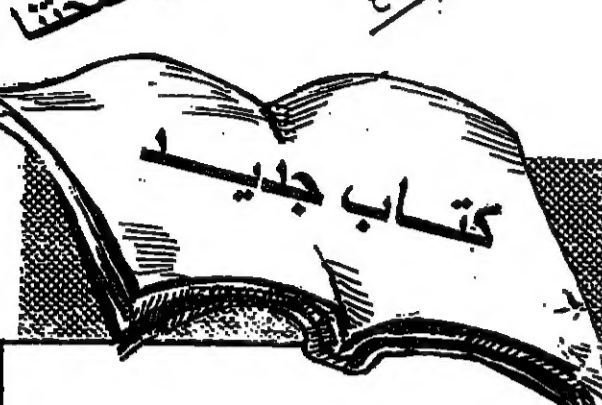 كتاب جديد